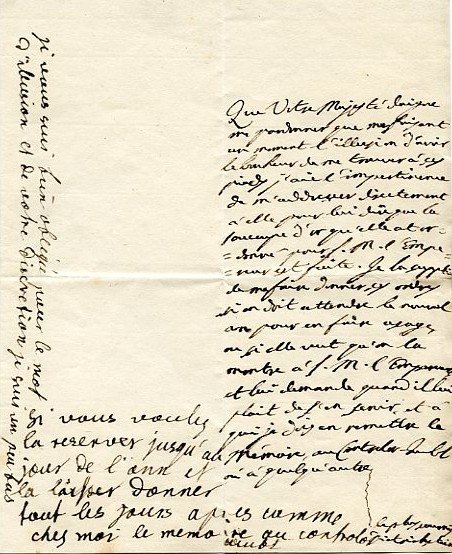 Que Votre Majesté daigne
me pardonner que me faisant
un moment l'illusion d'avoir
le bonheur de me trouver à ses
pieds j'aie l'impertinence
de m'addresser directement
à elle pour lui dire que la
soucoupe d'or qu'elle at or=
=donné pour S. M. l'Empe=
=reur est faite. Je la supplie
de me faire donner ses ordres
si on doit attendre le nouvel
an pour en faire usage
ou si elle veut qu'on la
montre à S. M. l'Empereur
et lui demande quand il lui
plait de s'en servir, et à
qui je dois en remettre le
Mémoire, au Controlor
ou à quelqu'autre
si vous voulez
la reserver jusqu'au
jour de l'ann et
la laisser donner
tout les jours apres comme
chez moi le memoire au controlor
je vous suis bien obligé pour le mot
d'illusion et de votre discretion je suis un peu bas